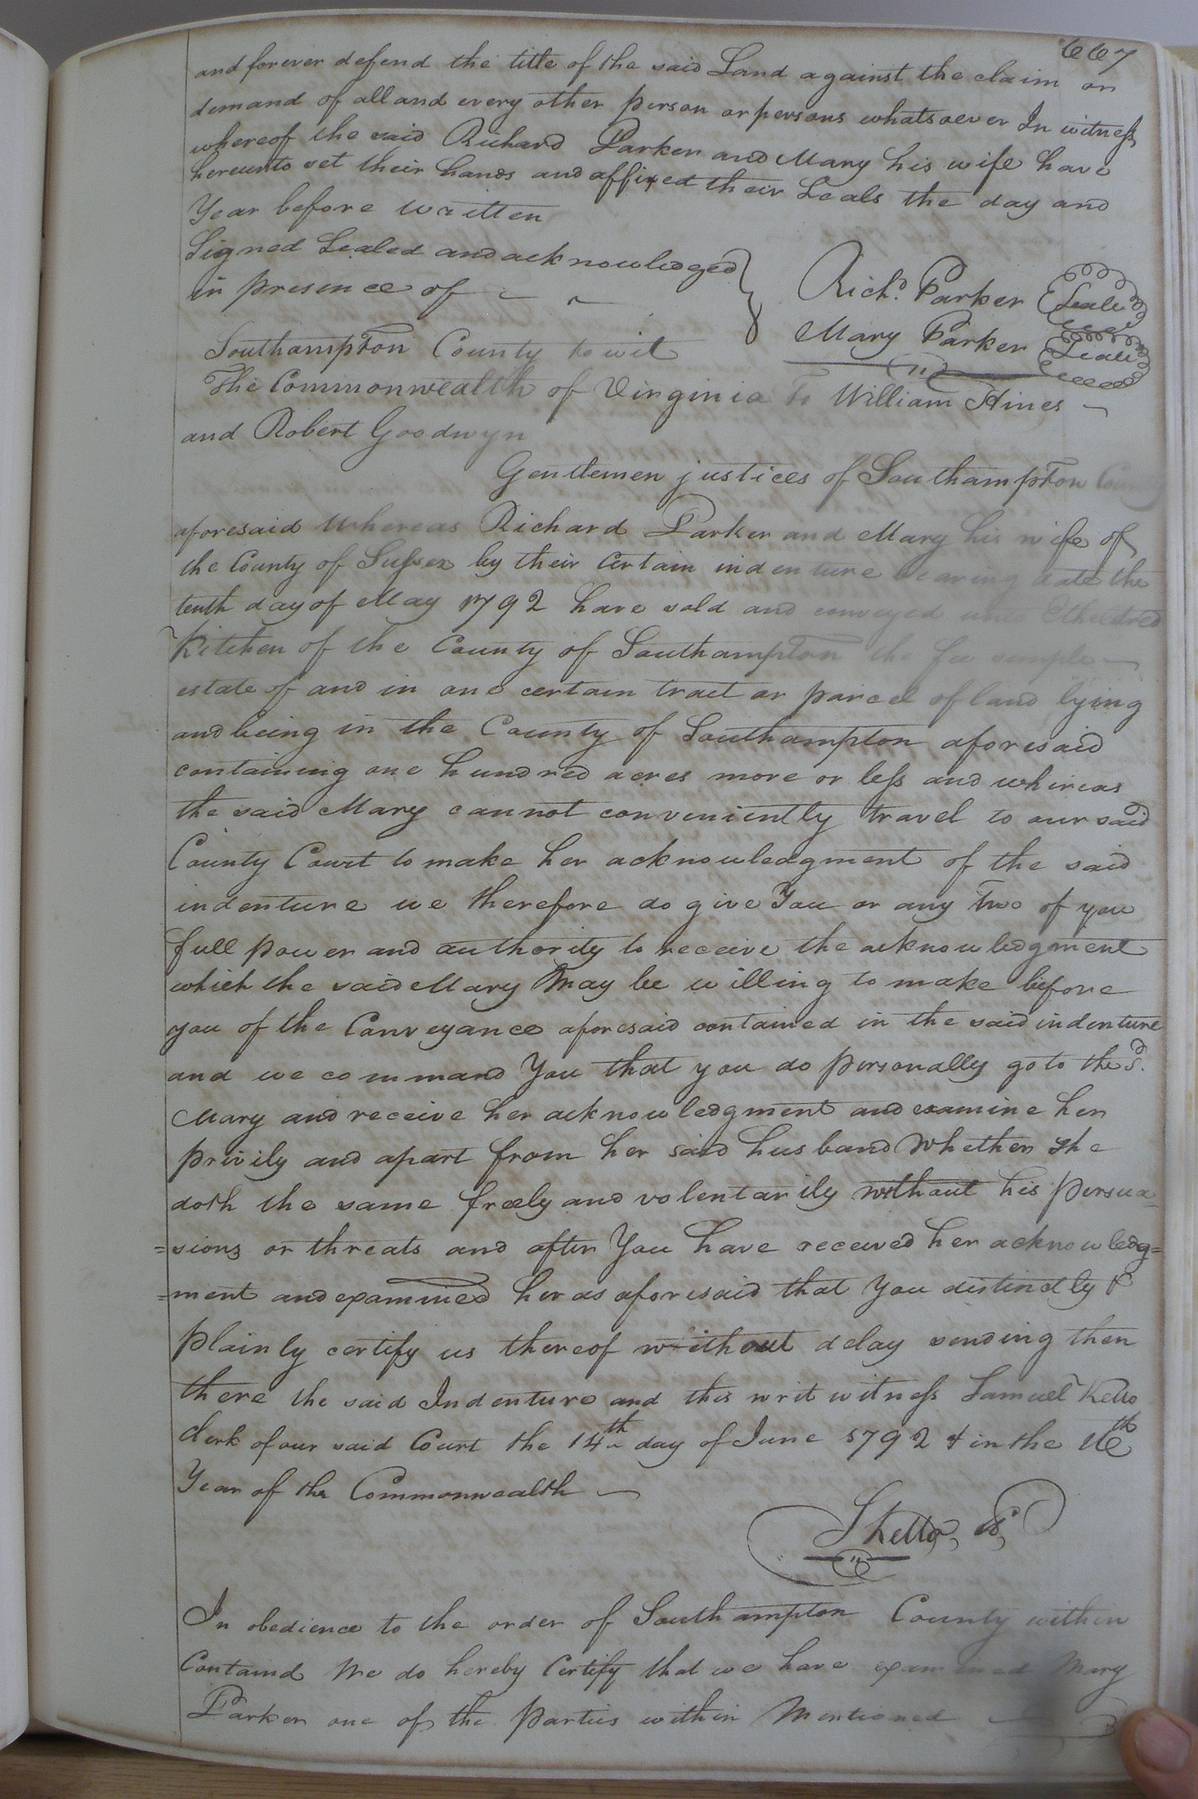 667
and forever defend the title of the said Land against the claim or
demand of all and every other person or persons whatsoever In witness
whereof the said Richard Parker and Mary his wife have
hereunto set their hands and affixed their Seals the day and
Year before written
Signed Sealed and acknowledged
in presence of
Richd. Parker Seale
Mary Parker Seale
Southampton County to wit
The Commonwealth of Virginia To William Hines
and Robert Goodwyn
Gentlemen justices of Southampton County
aforesaid Whereas Richard Parker and Mary his wife of
the County of Sussex by their Certain indenture bearing date the
tenth day of May 1792 have sold and conveyed unto Etheldred
Kitchen of the County of Southampton the fee simple
estate of and in one certain tract or parcel of land lying
and being in the County of Southampton aforesaid
containing one hundred acres more or less and whereas
the said Mary cannot conveniently travel to our said
County Court to make her acknowledgment of the said
indenture we therefore do give You or any Two of you
full power and authority to receive the acknowledgment
which the said Mary May be willing to make before
you of the Conveyance aforesaid contained in the said indenture
and we command You that you do personally go to the sd.
Mary and receive her acknowledgment and examine her
privily and apart from her said husband Whether she
doth the same freely and volentarily without his persua=
=sions or threats and after You have received her acknowledg=
=ment and examined her as aforesaid that You distinctly &
plainly certify us thereof without delay sending then
there the said Indenture and this writ witness Samuel Kello
Clerk of our said Court the 14th day of June 1792 & in the 16th
Year of the Commonwealth
S Kello, Ck
In obedience to the order of Southampton County within
Containd We do hereby Certify that we have examined Mary
Parker one of the Parties within Mentioned